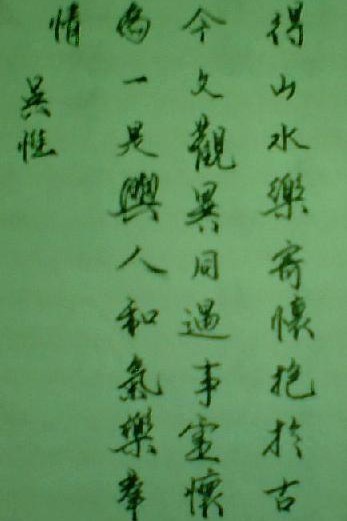 得山水樂寄懷抱於古
今文觀異同遇事虛懷
為一是與人和氣樂羣
情